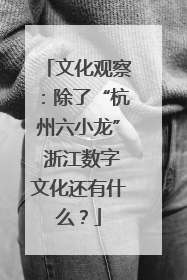 「文化观察
：除了“杭
州六小龙”
浙江数字
文化还有什
么？」